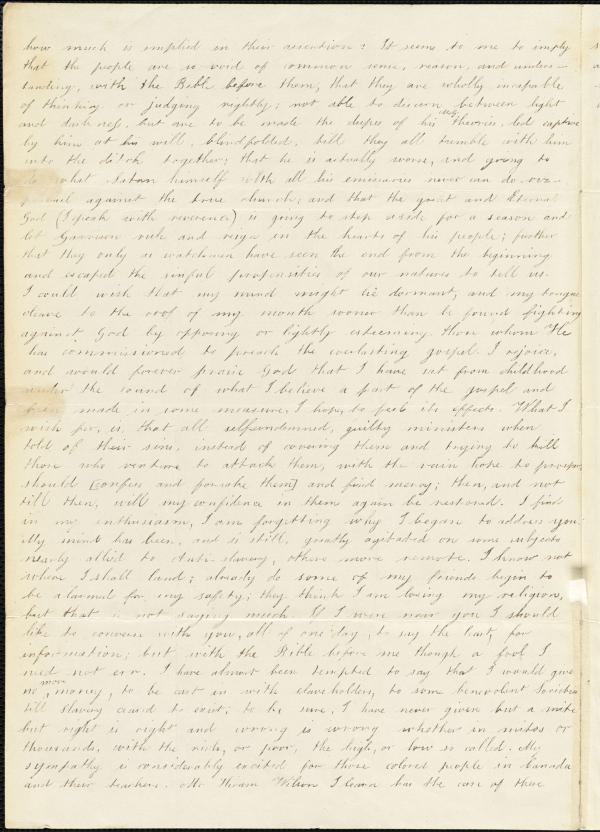 how much is implied in their assertion? It seems to me to imply
that the people are so void of common sense, reason, and unders-
tanding, with the Bible before them, that they are wholly incapable
of thinking or judging rightly; not able to discern between light
and darkness, but are to be made the dupes of his theories, led captive
by him at his will, blindfolded, till they all tumble with him
into the ditch together; that he is actually worse, and going to
do what Satan himself with all his emissaries never can do, pre-
vail against the true church; and that the great and Eternal
God (I speak with reverence) is going to step aside for a season and
let Garrison rule and reign in the hearts of his people; further
that they only as watchmen have seen the end from the beginning
and escaped the sinful propensities of our natures to tell us.
I could wish that my mind might lie dormant, and my tongue
cleave to the roof of my mouth sooner than be found fighting
against God by opposing or lightly esteeming those whom He
has commissioned to preach the everlasting gospel. I rejoice,
and would forever praise God that I have sat from childhood
under the sound of what I believe a part of the gospel and
been made in some measure, I hope, to feel its effects. What I
wish for, is, that all selfcondemned, guilty ministers when
told of their sins, instead of covering them and trying to kill
those who venture to attack them, with the vain hope to prosper,
should [confess and forsake them] and find mercy; then, and not
till then, will my confidence in them again be restored. I find
in my enthusiasm, I am forgetting why I began to address you.
My mind has been, and is still, greatly agitated on some subjects
nearly allied to Anti-slavery, others more remote. I know not
where I shall land; already do some of my friends begin to
be alarmed for my safety; they think I am losing my religion,
but that is not saying much. If I were near you I should
like to converse with you, all of one day, to say the least, for
information; but, with the Bible before me though a fool I
need not err. I have almost been tempted to say that I would give
no more money, to be cast in with slaveholders, to some benevolent Societies
till slavery ceased to exist; to be sure, I have never given but a mite
but right is right and wrong is wrong whether in mites or
thousands, with the rich, or poor, the high, or low so called. My
sympathy is considerably excited for those colored people in Canada
and their teachers. Mr Hiram Wilson I learn has the care of these